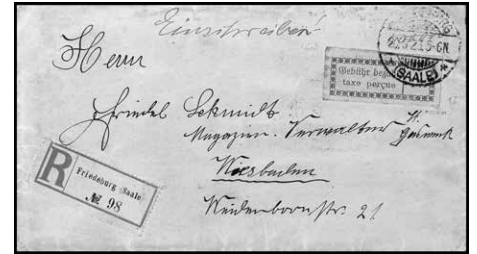 Einschreiben
Herrn
Gebühr bezahlt
taxe perçue
(SAALE)
Friedel Schmidt
Magazin-Verwalter
Wiesbaden
Weidenbornstr. 21
R
Friedeburg (Saale)
№ 98